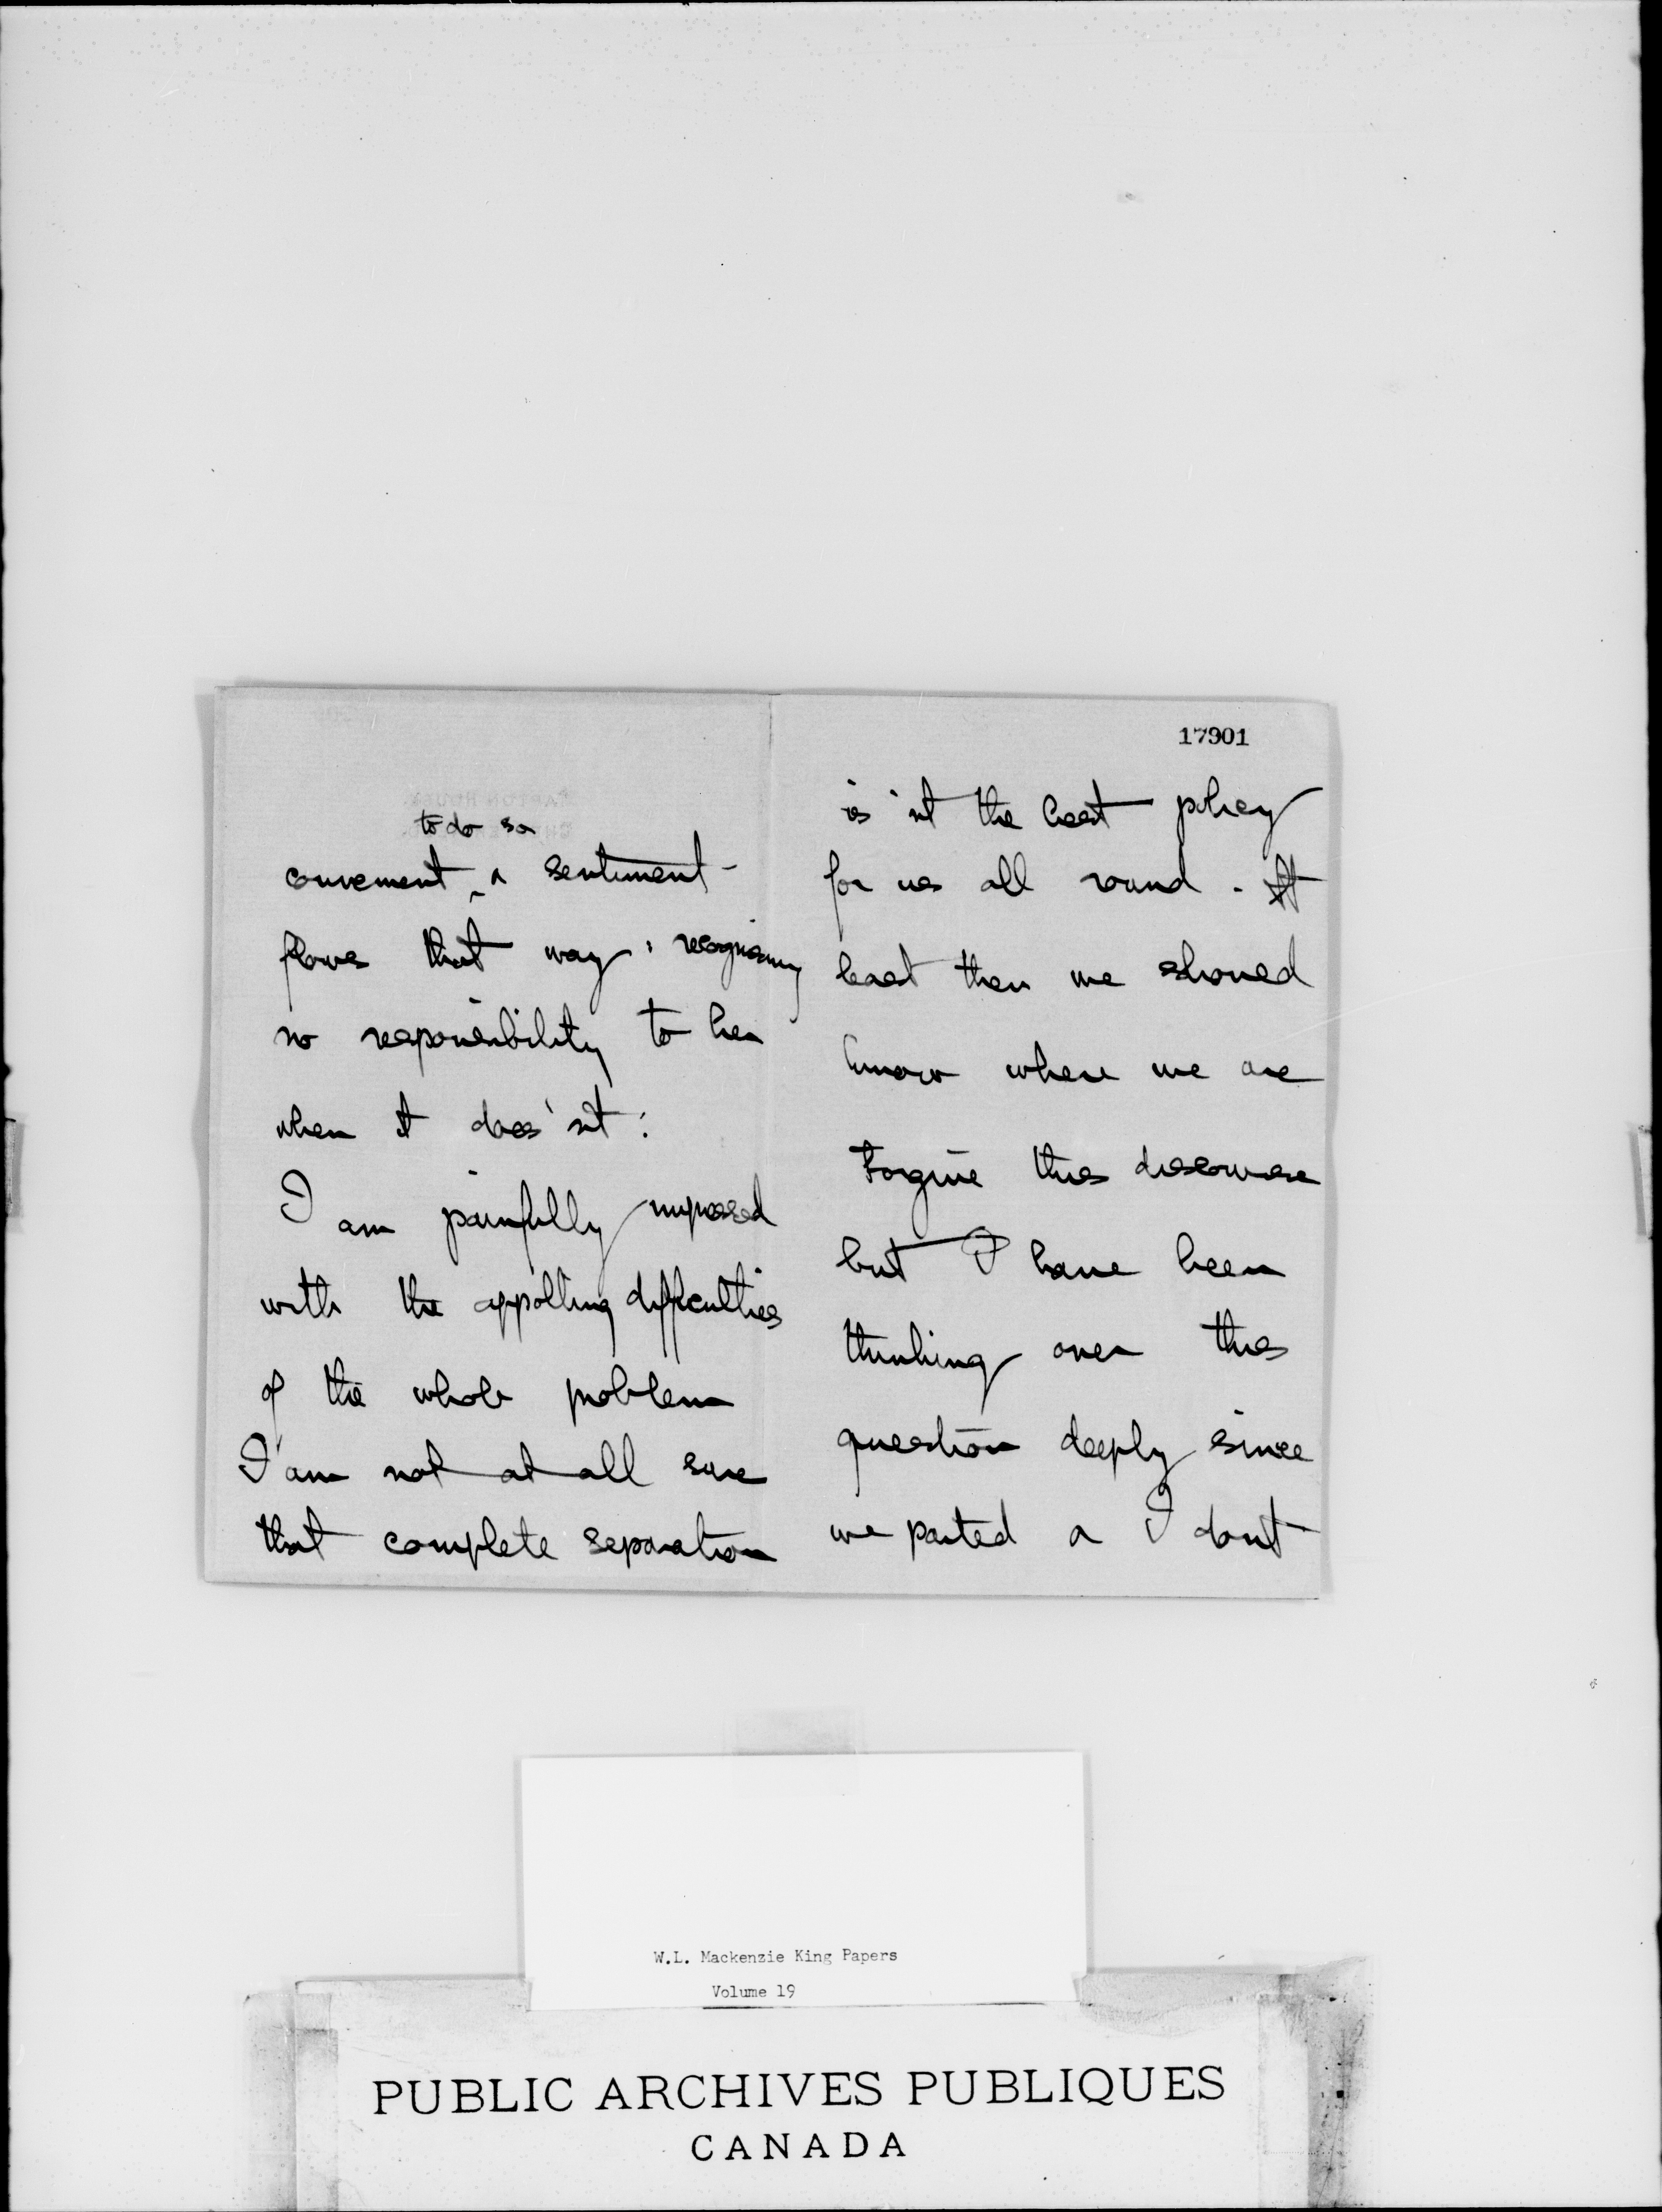 to do so
convenient & sentiment
flows that way, recognising
no responsibility to her
when it does'nt:
I am painfully impressed
with the appalling difficulties
of the whole problem
I am not at all sure
that complete separation
17901
is'nt the best policy
for us all round. At
least then we should
know where we are
Forgive this discourse
but I have been
thinking over this
question deeply since
we parted & I don't
W.L. Mackenzie King Papers
Volume 19
PUBLIC ARCHIVES PUBLIQUES
CANADA